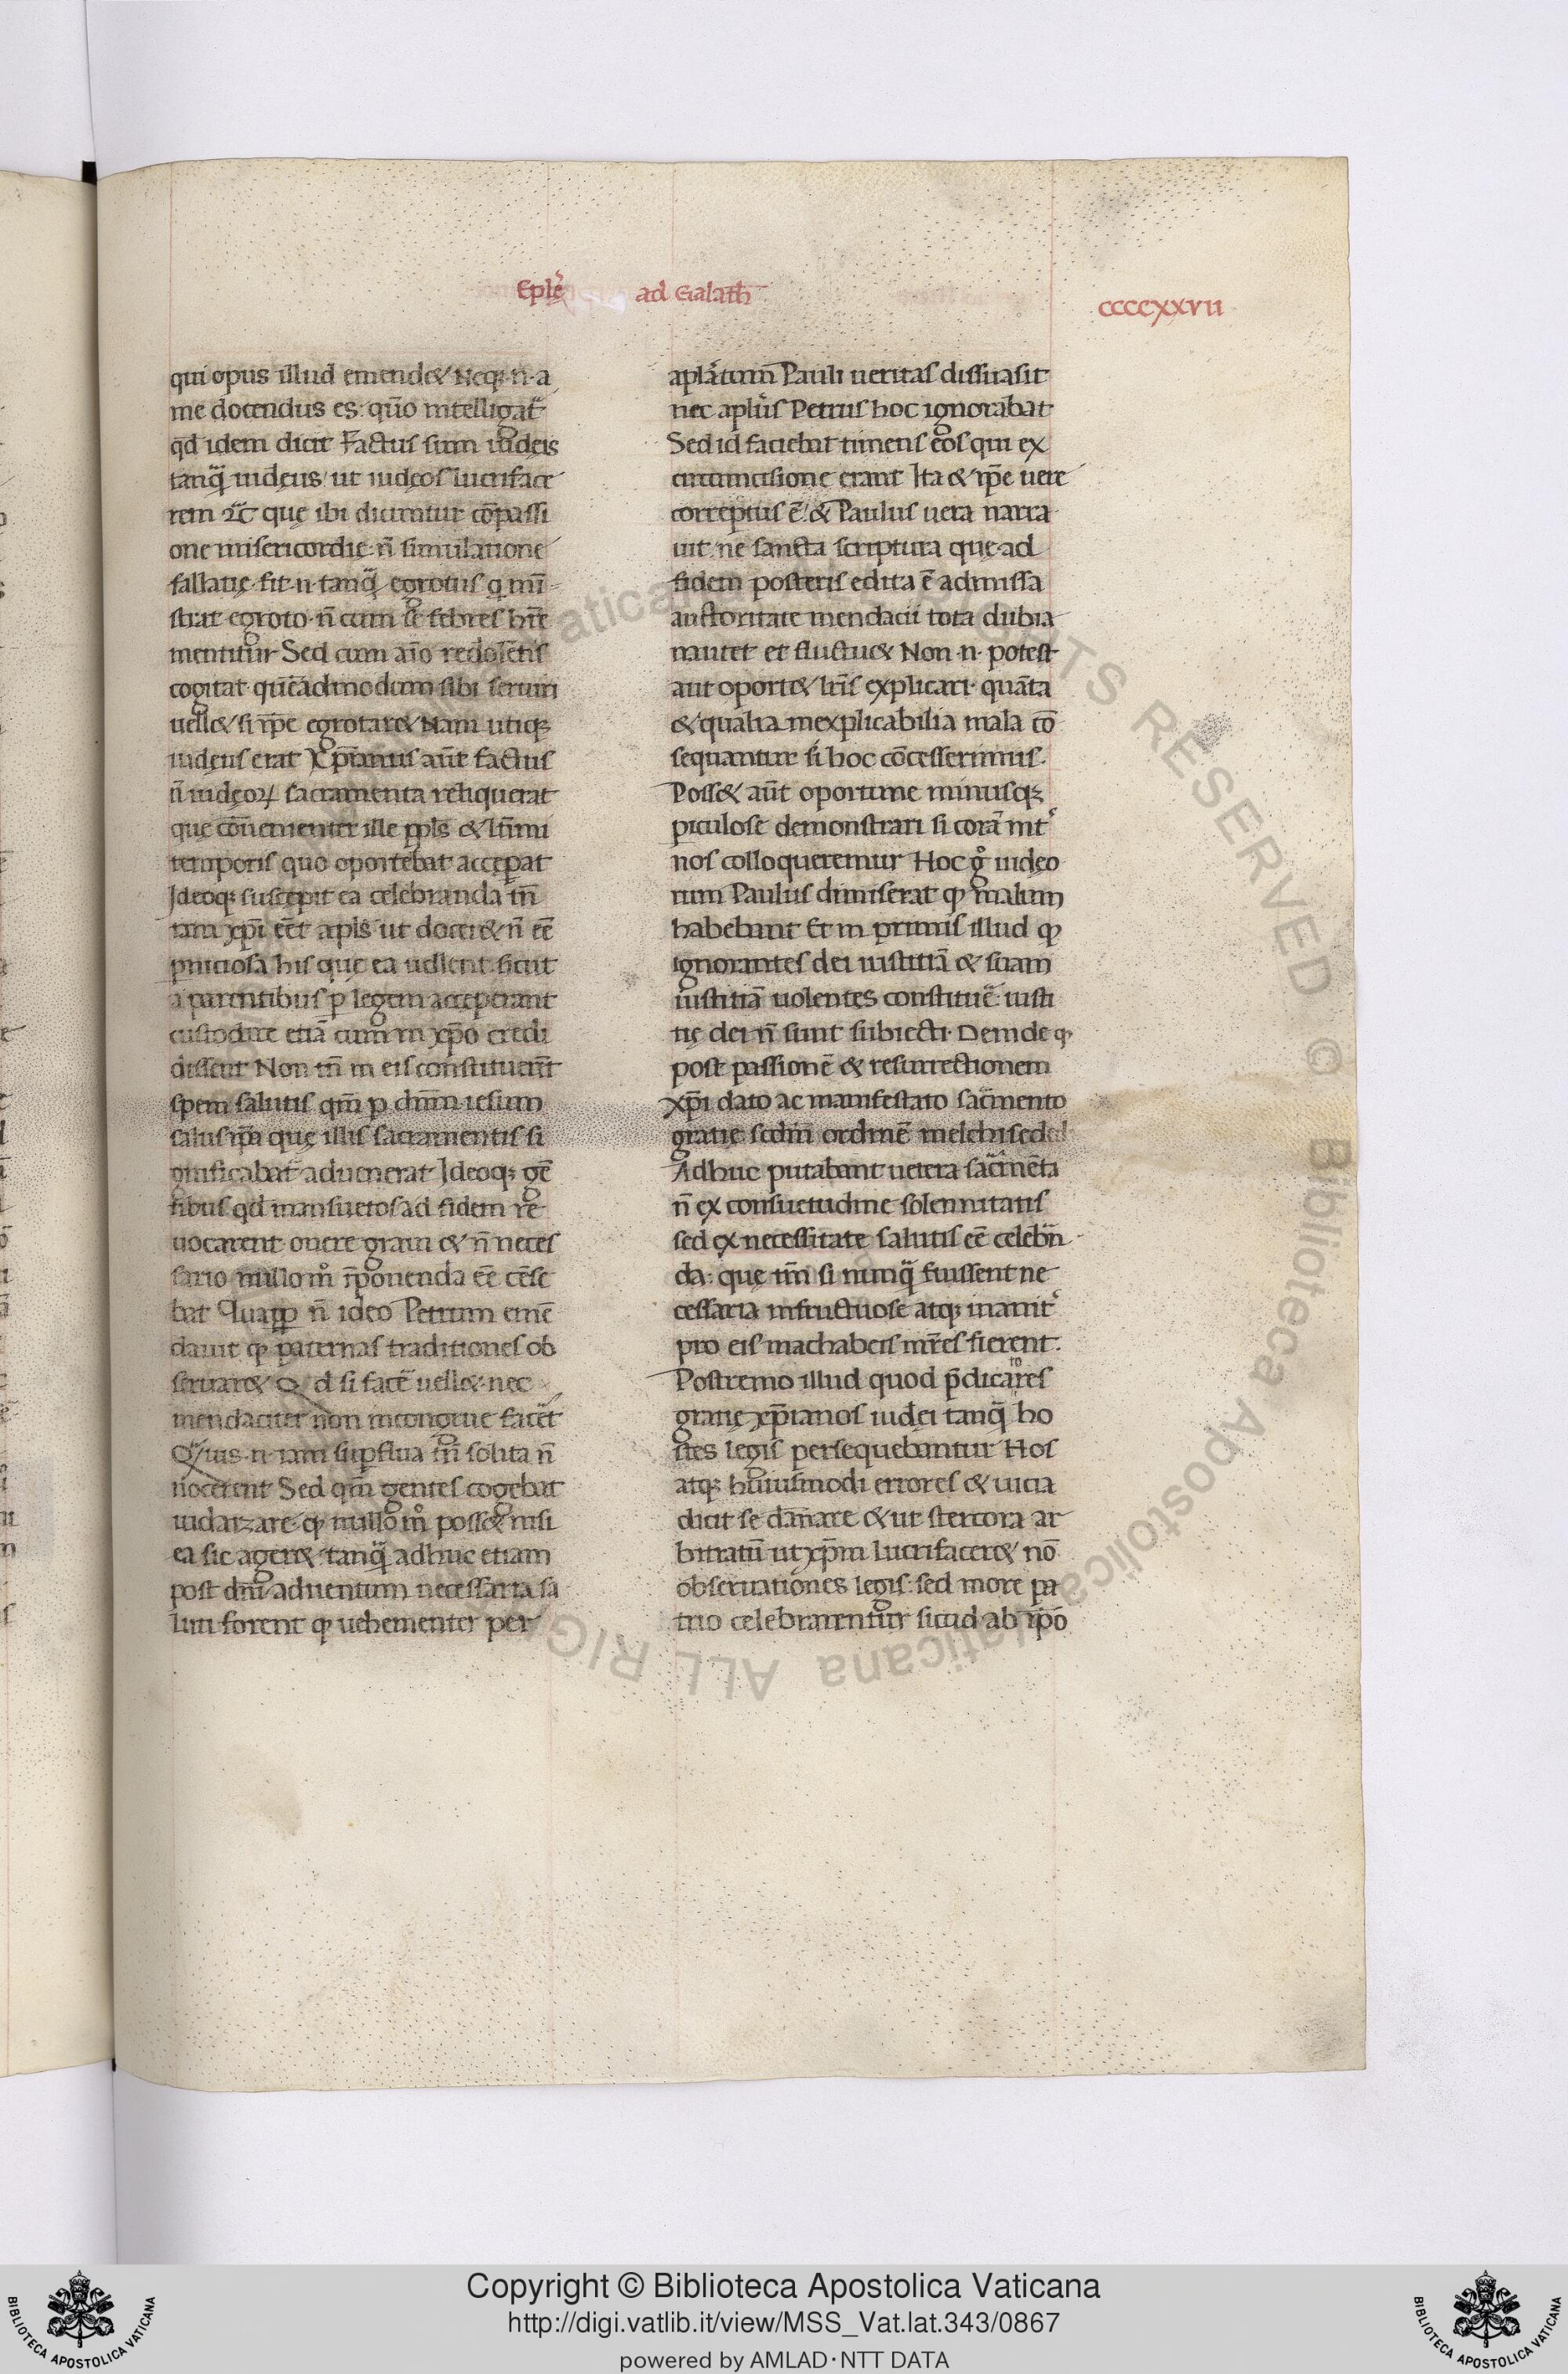 Eplẽ ad Galath̄
ccccxxvii
qui opus illud emend&. Neqꝫ·n·a
me docendus es: quō intelligat᷑
qd̄ idem dicit Factus sum iudęis
tanq̈ iudęus, ut iudęos lucriface
rem ⁊c̄ quę ibi dicuntur cōpassi
one misericordię: n̄ simulatione
fallatię· fit·n·tanq̈ egrotus q mīnī
strat egroto· n̄ cum se febres hr̄e
mentitur Sed cum aīo redolētis
cogitat· quēadmodum sibi seruiri
uell& si ip̄e egrotar& Nam utiqꝫ
iudęus erat Xp̄ianus aūt factus
n̄ iudęoꝝ sacramenta reliquerat
quę cōuenienter ille ppl̄s & ltīmi
temporis quo oportebat acceperat
Ideoqꝫ suscepit ea celebranda tn̄
iam xp̄i eēt apl̄s ut docer& n̄ eē
pniciosa his que ea uellent: sicut
a parentibus p legem acceperant
custodire etiā cum in xp̄o credi
dissent Non tn̄ in eis constituerēt
spem salutis qm̄ p dn̄m iesum
salus ip̄a quę illis sacramentis si
gnificabat᷑ aduenerat Ideoqꝫ gē
tibus qd mansuetos ad fidem re
uocarent onere graui & n̄ neces
sario nullom̊ īponenda eē cēse
bat Quapp n̄ ideo Petrum emē
dauit ꝙ paternas traditiones ob
seruar& Qd si facẽ uell& nec
mendaciter non incongrue facẽt
Q̈uis·n·iam supflua tn̄ solita n̄
nocerent Sed qm̄ gentes cogebat
iudaizare ꝙ nullom̊ poss& nisi
ea sic ager& tanq̈ adhuc etiam
post dn̄i aduentum necessaria sa
luti forent ꝙ uehementer per
apl̄atum Pauli ueritas dissuasit
nec apl̄us Petrus hoc ignorabat
Sed id faciebat timens eos qui ex
circumcisione erant Ita & ip̄e uere
correptus ē: & Paulus uera narra
uit: ne sancta scriptura que·ad
fidem posteris edita ē admissa
auctoritate mendacii tota dubia
nutet et fluctu& Non·n·potest
aut oport& lr̄is explicari· quāta
& qualia inexplicabilia mala cō
sequantur si hoc cōcesserimus.
Poss& aūt oportune minusqꝫ
piculose demonstrari si corā int᷑
nos colloqueremur Hoc g̊ iudęo
rum Paulus dimiserat ꝙ malum
habebant Et in primis illud ꝙ
ignorantes dei iustitiā & suam
iustitiā uolentes constituẽ: iusti
tię dei n̄ sunt subiecti· Deinde ꝙ
post passionē & resurrectionem
xp̄i dato ac manifestato sac̄mento
gratię scdm̄ ordinē melchisedech
Adhuc putabant uetera sac̄mēta
n̄ ex consuetudine solennitatis
sed ex necessitate salutis eē celebn̄
da: quę tn̄ si nunq̈ fuissent ne
cessaria infructuose atqꝫ inanit᷑
pro eis machabeis mr̄es fierent.
Postremo illud quod p̄dicatores
gratię xp̄ianos iudęi tanq̈ ho
stes legis persequebantur Hos
atqꝫ huiusmodi errores & uicia
dicit se dānare & ut stercora ar
bitratū ut xp̄m lucrifacer& nō
obseruationes legis: sed more pa
trio celebrarentur sicud ab ip̄o
Copyright © Biblioteca Apostolica Vaticana
http://digi.vatlib.it/view/MSS_Vat.lat.343/0867
powered by AMLAD·NTT DATA